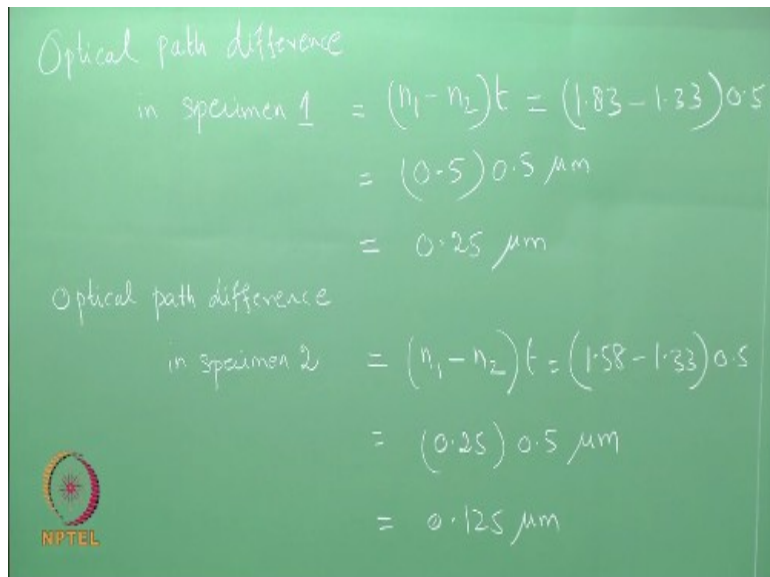 Optical path difference
in specimen 1 = (n₁ - n₂)t = (1.83 - 1.33)0.5
= (0.5) 0.5 μm
= 0.25 μm
Optical path difference
in specimen 2 = (n₁ - n₂)t = (1.58 - 1.33)0.5
= (0.25) 0.5 μm
= 0.125 μm
NPTEL